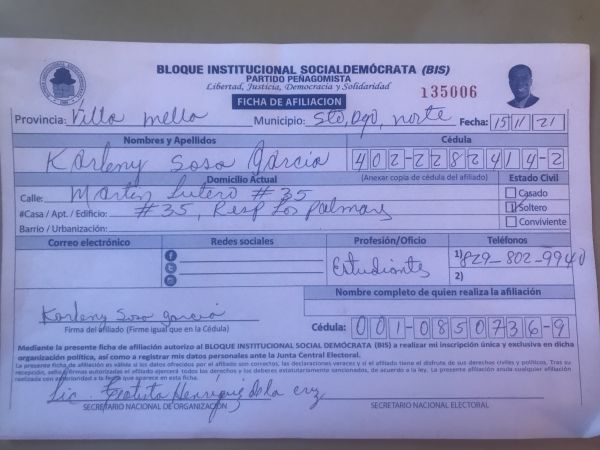 BLOQUE INSTITUCIONAL SOCIALDEMÓCRATA (BIS)
PARTIDO PEÑAGOMISTA
Libertad, Justicia, Democracia y Solidaridad
135006
FICHA DE AFILIACION
Provincia: Villa mella Municipio: Sto, Dgo, norte Fecha: 15/11/21
Nombres y Apellidos Cédula
Karleny Sosa Garcia 402-2282414-2
Domicilio Actual (Anexar copia de cédula del afiliado) Estado Civil
Calle: Martin Lutero # 35 Casado
#Casa / Apt. / Edificio: # 35, Resp Los palmares Soltero
Barrio / Urbanización: Conviviente
Correo electrónico Redes sociales Profesión/Oficio Teléfonos
Estudiante 1) 829-802-9940
2)
Nombre completo de quien realiza la afiliación
Karleny Sosa garcia
Firma del afiliado (Firme igual que en la Cédula) Cédula: 001-0850736-9
Mediante la presente ficha de afiliación autorizo al BLOQUE INSTITUCIONAL SOCIAL DEMÓCRATA (BIS) a realizar mi inscripción única y exclusiva en dicha
organización política, así como a registrar mis datos personales ante la Junta Central Electoral.
La presente ficha de afiliación es válida si los datos ofrecidos por el afiliado son correctos, las declaraciones veraces y si el afiliado tiene el disfrute de sus derechos civiles y políticos. Tras su
recepción, sello y firmas autorizadas el afiliado ejercerá todos los derechos y los deberes estatutariamente sancionados, de acuerdo a la ley. La presente afiliación anula cualquier afiliación
realizada con anterioridad a la fecha que aparece en esta ficha.
Lic. Henríquez de la cruz
SECRETARIO NACIONAL DE ORGANIZACIÓN SECRETARIO NACIONAL ELECTORAL